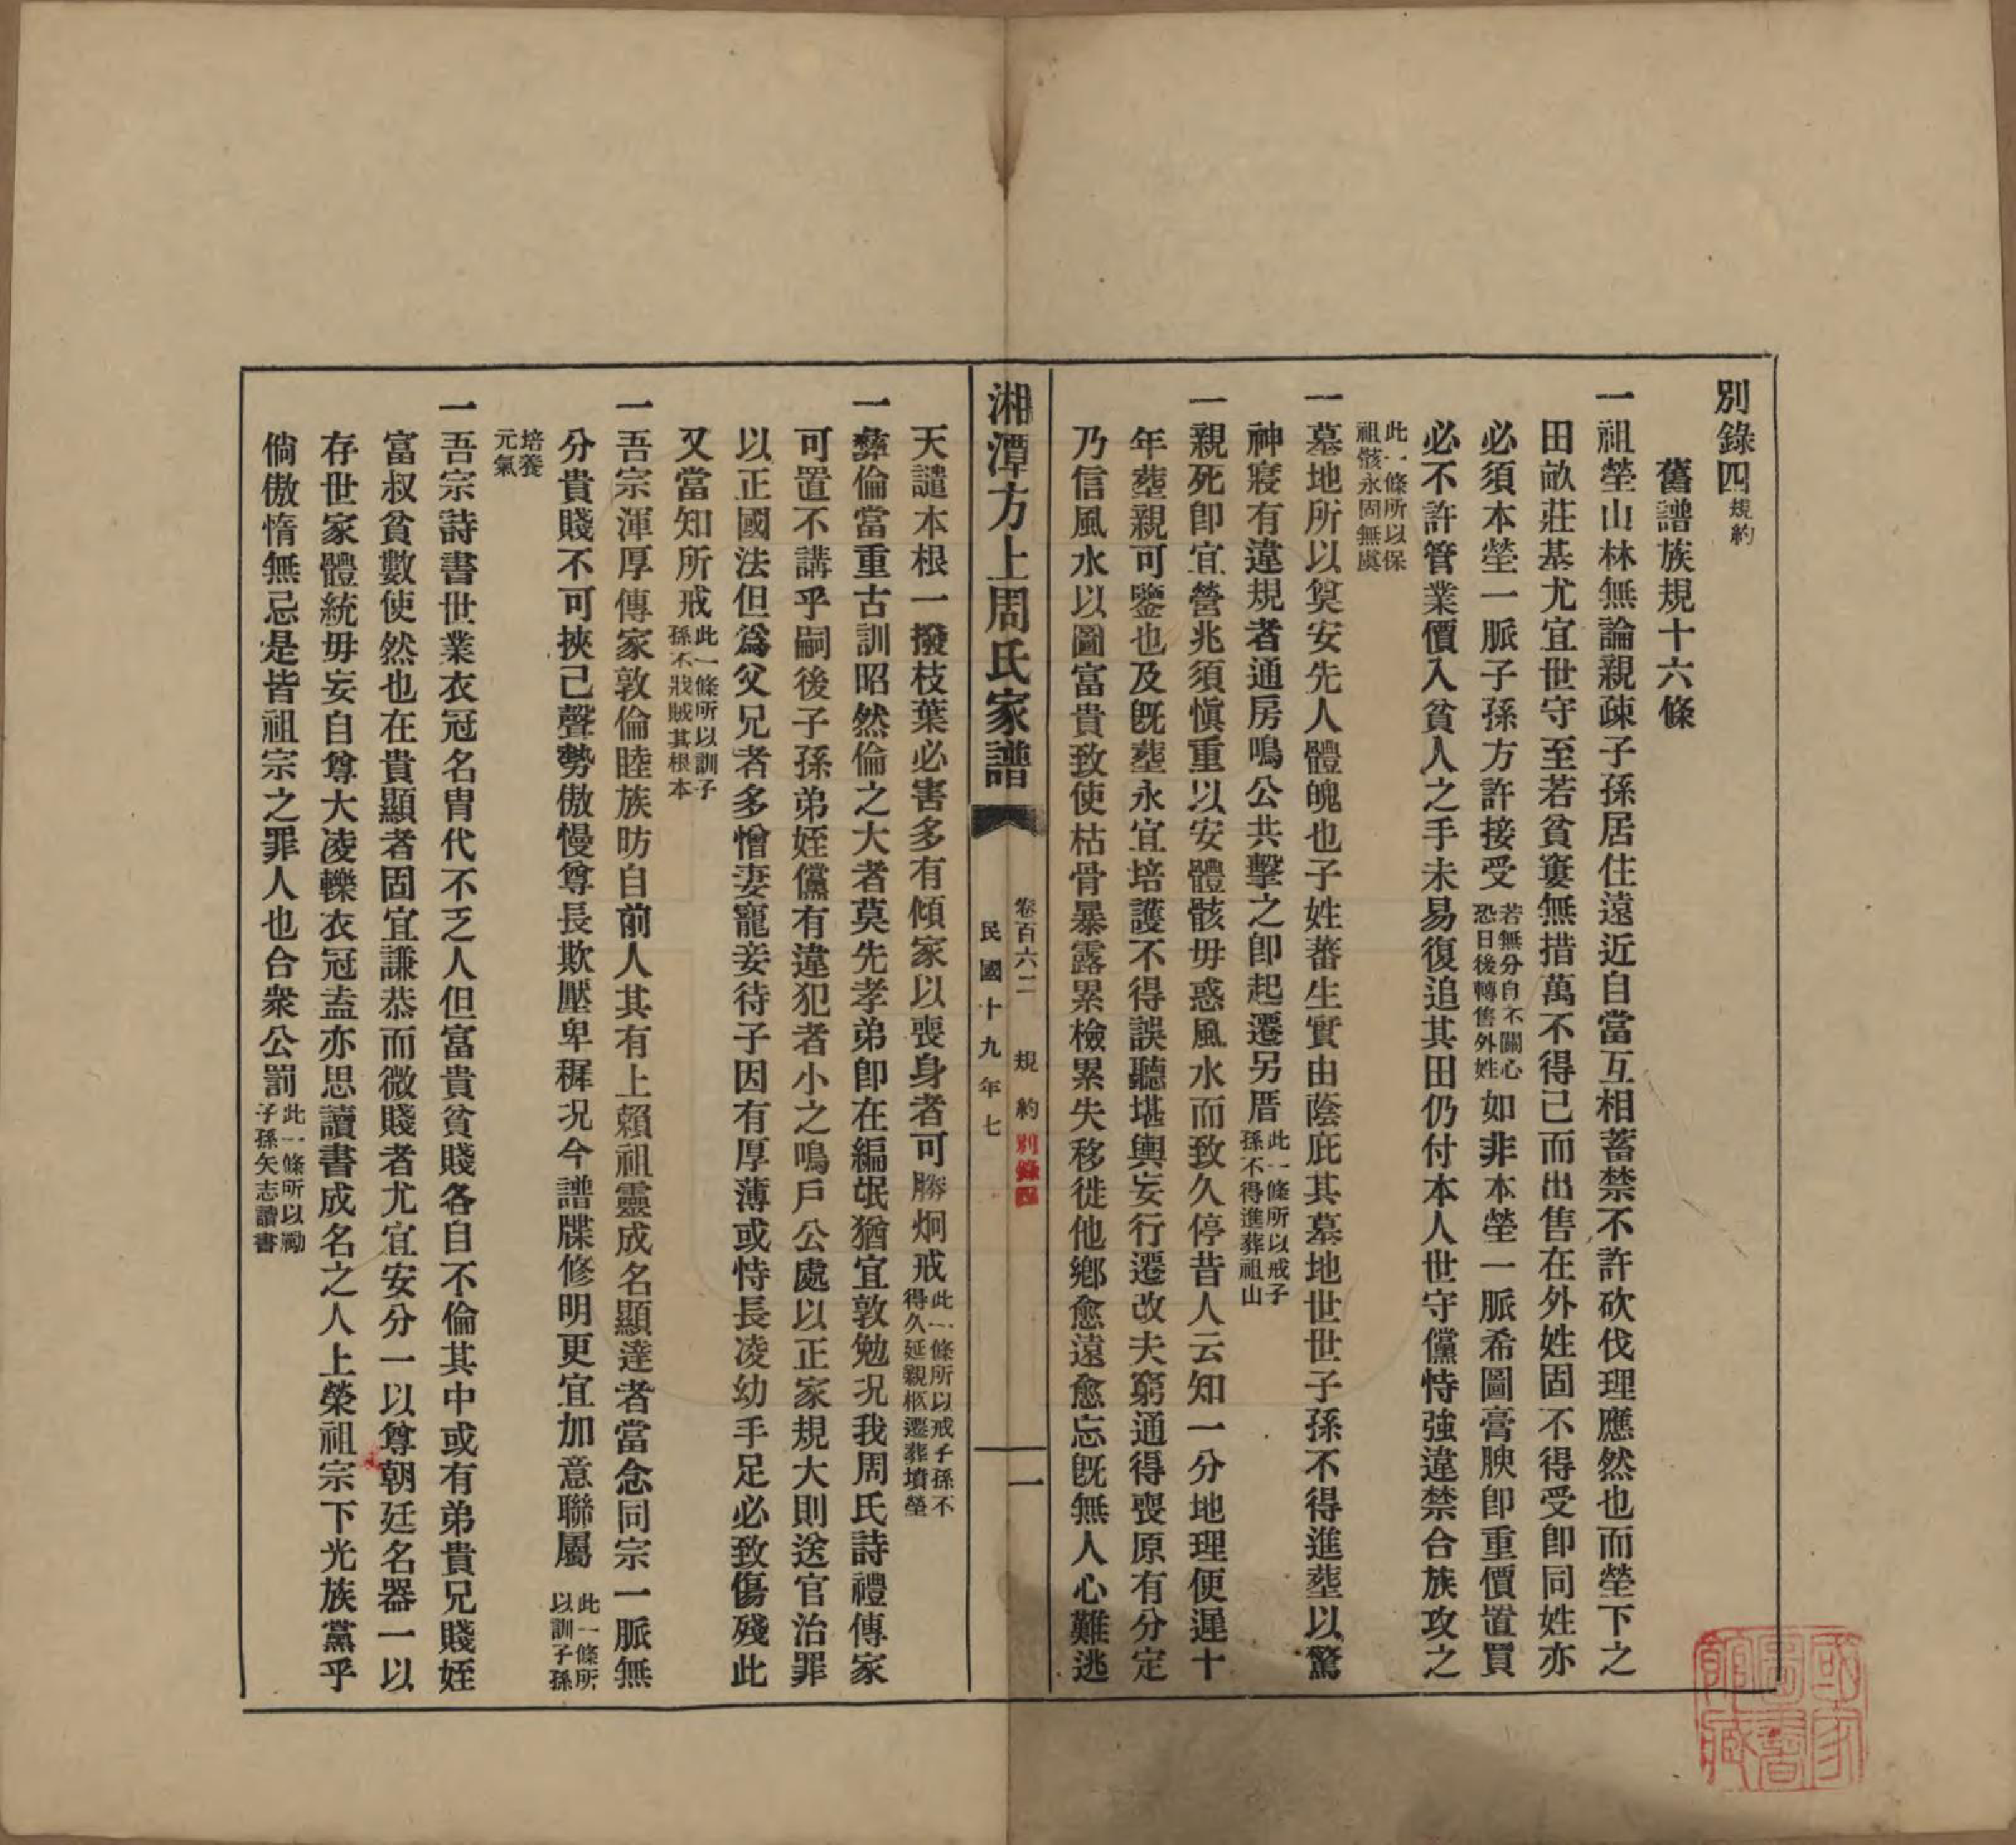 別錄四規約
舊譜族規十六條
一祖塋山林無論親疎子孫居住遠近自當互相蓄禁不許砍伐理應然也而塋下之
田畝莊基尤宜世守至若貧窶無措萬不得已而出售在外姓固不得受卽同姓亦
必須本塋一脈子孫方許接受若無分自不關心恐日後轉售外姓如非本塋一脈希圖膏腴卽重價置買
必不許管業價入貧人之手未易復追其田仍付本人世守儻恃強違禁合族攻之
此一條所以保祖骸永固無虞
一墓地所以奠安先人體魄也子姓蕃生實由蔭庇其墓地世世子孫不得進塟以驚
神寢有違規者通房鳴公共擊之卽起遷另厝此一條所以戒子孫不得進葬祖山
一親死卽宜營兆須愼重以安體骸毋惑風水而致久停昔人云知一分地理便遲十
年塟親可鑒也及旣塟永宜培護不得誤聽堪輿妄行遷改夫窮通得喪原有分定
乃信風水以圖富貴致使枯骨暴露累檢累失移徙他鄉愈遠愈忘旣無人心難逃
湘潭方上周氏家譜
卷百六二 規約 別錄四
民國十九年七
一
天譴本根一撥枝葉必害多有傾家以喪身者可勝炯戒此一條所以戒子孫不得久延親柩遷葬墳塋
一彝倫當重古訓昭然倫之大者莫先孝弟卽在編氓猶宜敦勉况我周氏詩禮傳家
可置不講乎嗣後子孫弟姪儻有違犯者小之鳴戶公處以正家規大則送官治罪
以正國法但爲父兄者多憎妻寵妾待子因有厚薄或恃長凌幼手足必致傷殘此
又當知所戒此一條所以訓子孫不戕賊其根本
一吾宗渾厚傳家敦倫睦族昉自前人其有上賴祖靈成名顯達者當念同宗一脈無
分貴賤不可挾己聲勢傲慢尊長欺壓卑穉况今譜牒修明更宜加意聯屬此一條所以訓子孫
培養元氣
一吾宗詩書世業衣冠名胄代不乏人但富貴貧賤各自不倫其中或有弟貴兄賤姪
富叔貧數使然也在貴顯者固宜謙恭而微賤者尤宜安分一以尊朝廷名器一以
存世家體統毋妄自尊大凌轢衣冠盍亦思讀書成名之人上榮祖宗下光族黨乎
倘傲惰無忌是皆祖宗之罪人也合衆公罰此一條所以勵子孫矢志讀書
國家圖書館藏